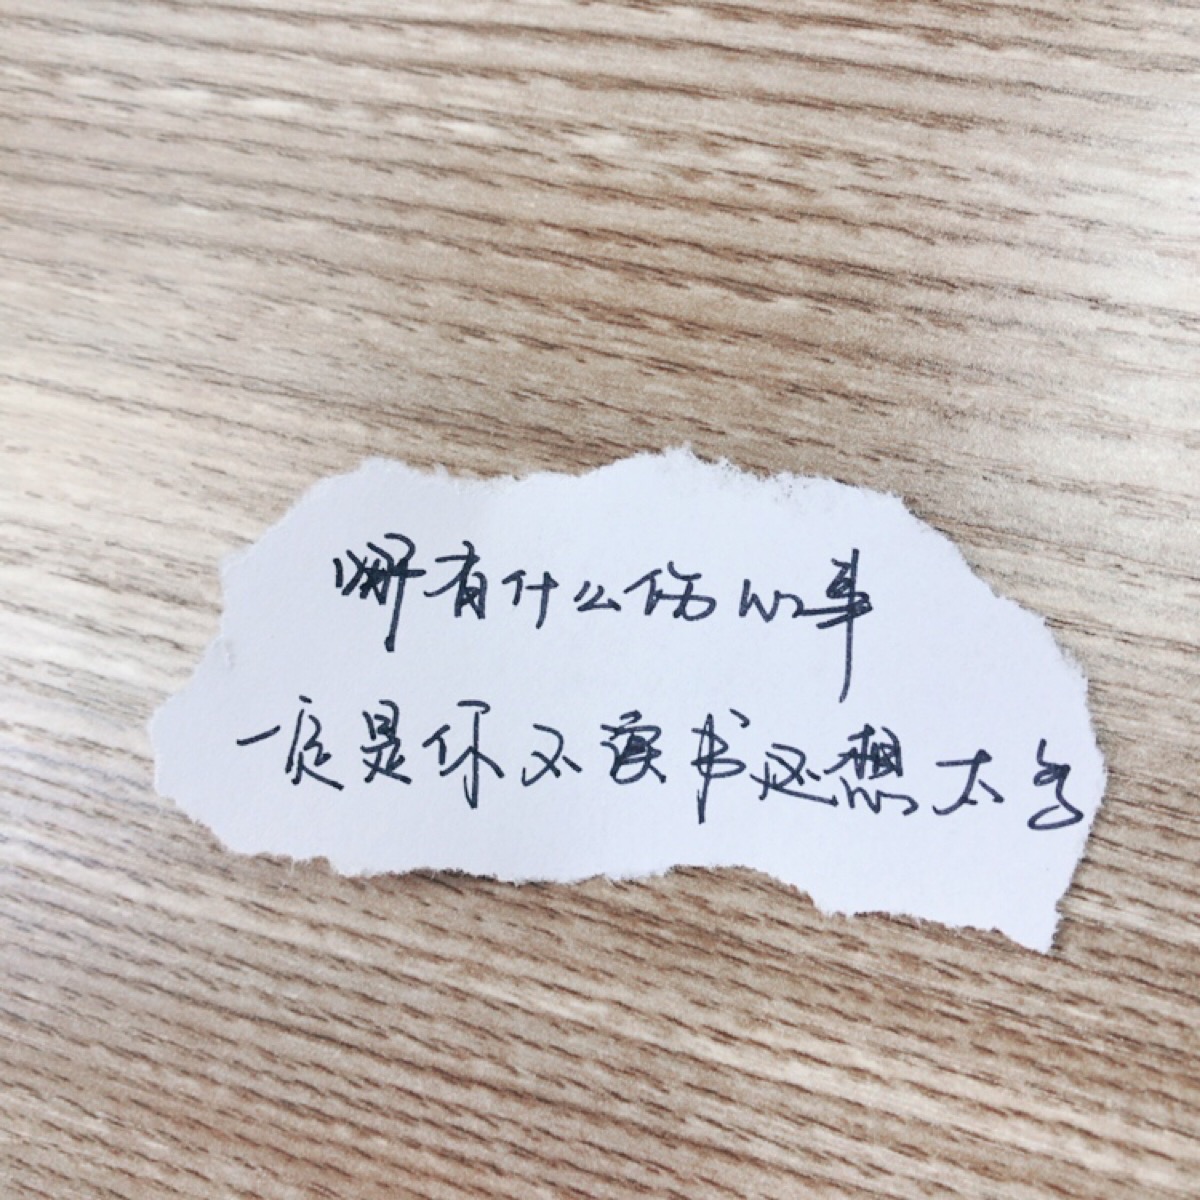 哪有什么伤心事
一定是你不读书还想太多